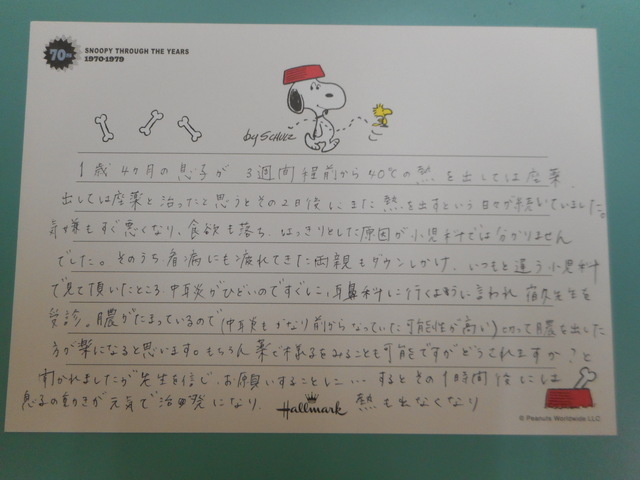 70's
SNOOPY THROUGH THE YEARS
1970-1979
by SCHULZ
1歳4ヶ月の息子が3週間程前から40℃の熱を出しては座薬、
出しては座薬と治ったと思うとその2日後にまた熱を出すという日々が続いていました。
機嫌もすぐ悪くなり、食欲も落ち、はっきりとした原因が小児科では分かりません
でした。そのうち看病にも疲れてきた両親もダウンしかけ、いつもと違う小児科
で見て頂いたところ、中耳炎がひどいのですぐに、耳鼻科に行くように言われ 先生を
受診。膿がたまっているので(中耳炎もかなり前からなっていた可能性が高い)切って膿を出した
方が楽になると思います。もちろん薬で様子をみることも可能ですがどうされますか?と
聞かれましたが先生を信じ、お願いすることに… するとその1時間後には
息子の動きが元気で活発になり、 熱も出なくなり
Hallmark
© Peanuts Worldwide LLC